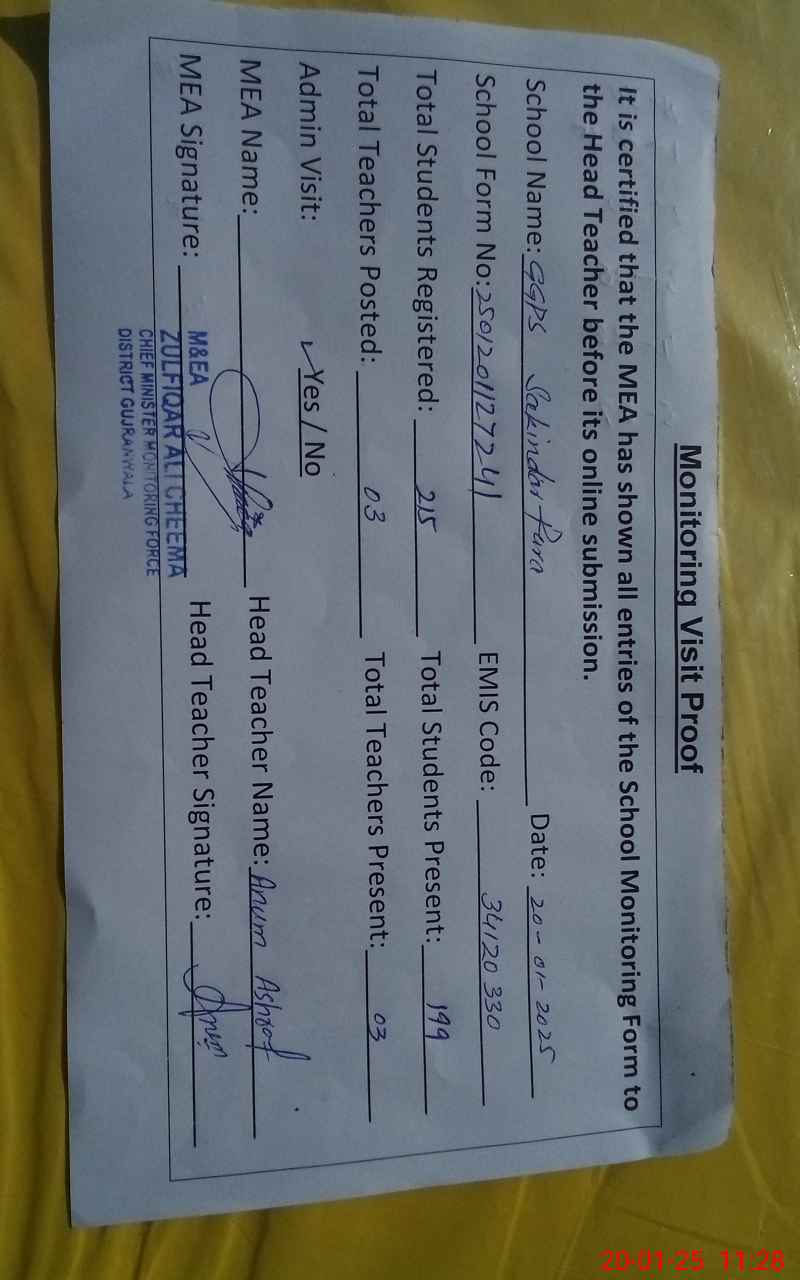 Monitoring Visit Proof
It is certified that the MEA has shown all entries of the School Monitoring Form to
the Head Teacher before its online submission.
School Name: GGPS Sakindar Pura Date: 20-01-2025
School Form No: 2501201127241 EMIS Code: 34120330
Total Students Registered: 215 Total Students Present: 199
Total Teachers Posted: 03 Total Teachers Present: 03
Admin Visit: ✓Yes / No
MEA Name: Head Teacher Name: Anum Ashraf
MEA Signature: Head Teacher Signature: Anum
M&EA
ZULFIQAR ALI CHEEMA
CHIEF MINISTER MONITORING FORCE
DISTRICT GUJRANWALA
20-01-25 11:28